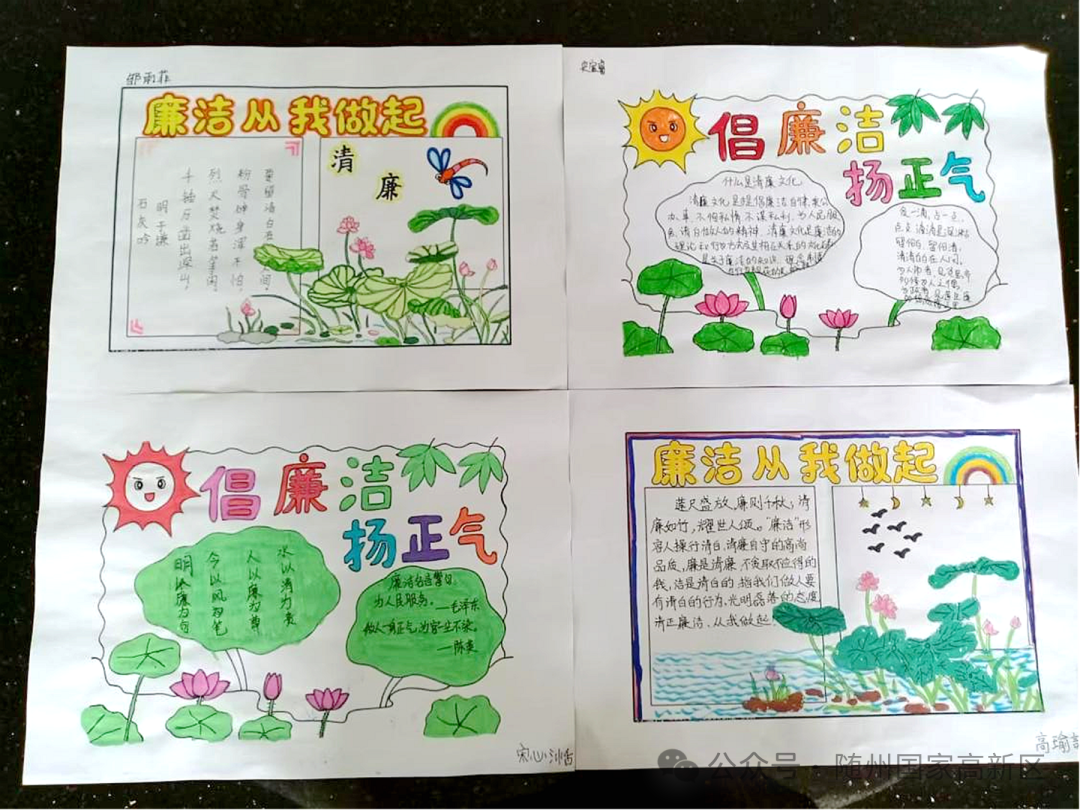 邹雨菲
廉洁从我做起
清
廉
石灰吟
明于谦
千锤万凿出深山，
烈火焚烧若等闲。
粉骨碎身浑不怕，
要留清白在人间。
倡廉洁
扬正气
什么是清廉文化
清廉文化是提倡廉洁自律秉公
办事 不怕私情 不谋私利，为人民服
务，清白做人的精神。清廉文化是廉洁的
点点滴滴是深渊
留何白，留何清，
清清白白在人间。
倡廉洁
扬正气
水以清为贵
人以廉为尊
今以风为笔
廉为句
廉洁名言警句
为人民服务。—毛泽东
做人一身正气，为官一尘不染。
—陈奕
廉洁从我做起
莲尺盛放，廉则千秋；清
廉如竹，耀世人颂。"廉洁"形
容人操行清白，清廉自守的高尚
品质，廉是清廉 不贪取不应得的
钱，洁是清白的，指我们做人要
有清白的行为，光明磊落的态度
清正廉洁、从我做起！
高瑜
公众号·随州国家高新区